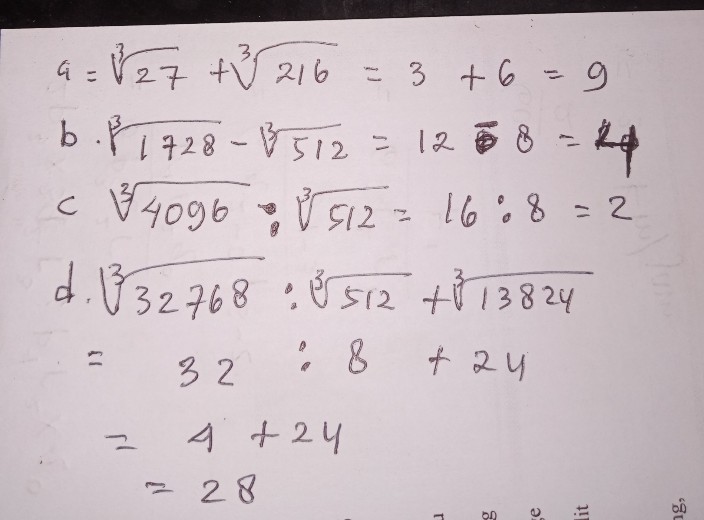 a = ∛27 + ∛216 = 3 + 6 = 9
b. ∛1728 - ∛512 = 12 - 8 = 4
c ∛4096 : ∛512 = 16 : 8 = 2
d. ∛32768 : ∛512 + ∛13824
= 32 : 8 + 24
= 4 + 24
= 28